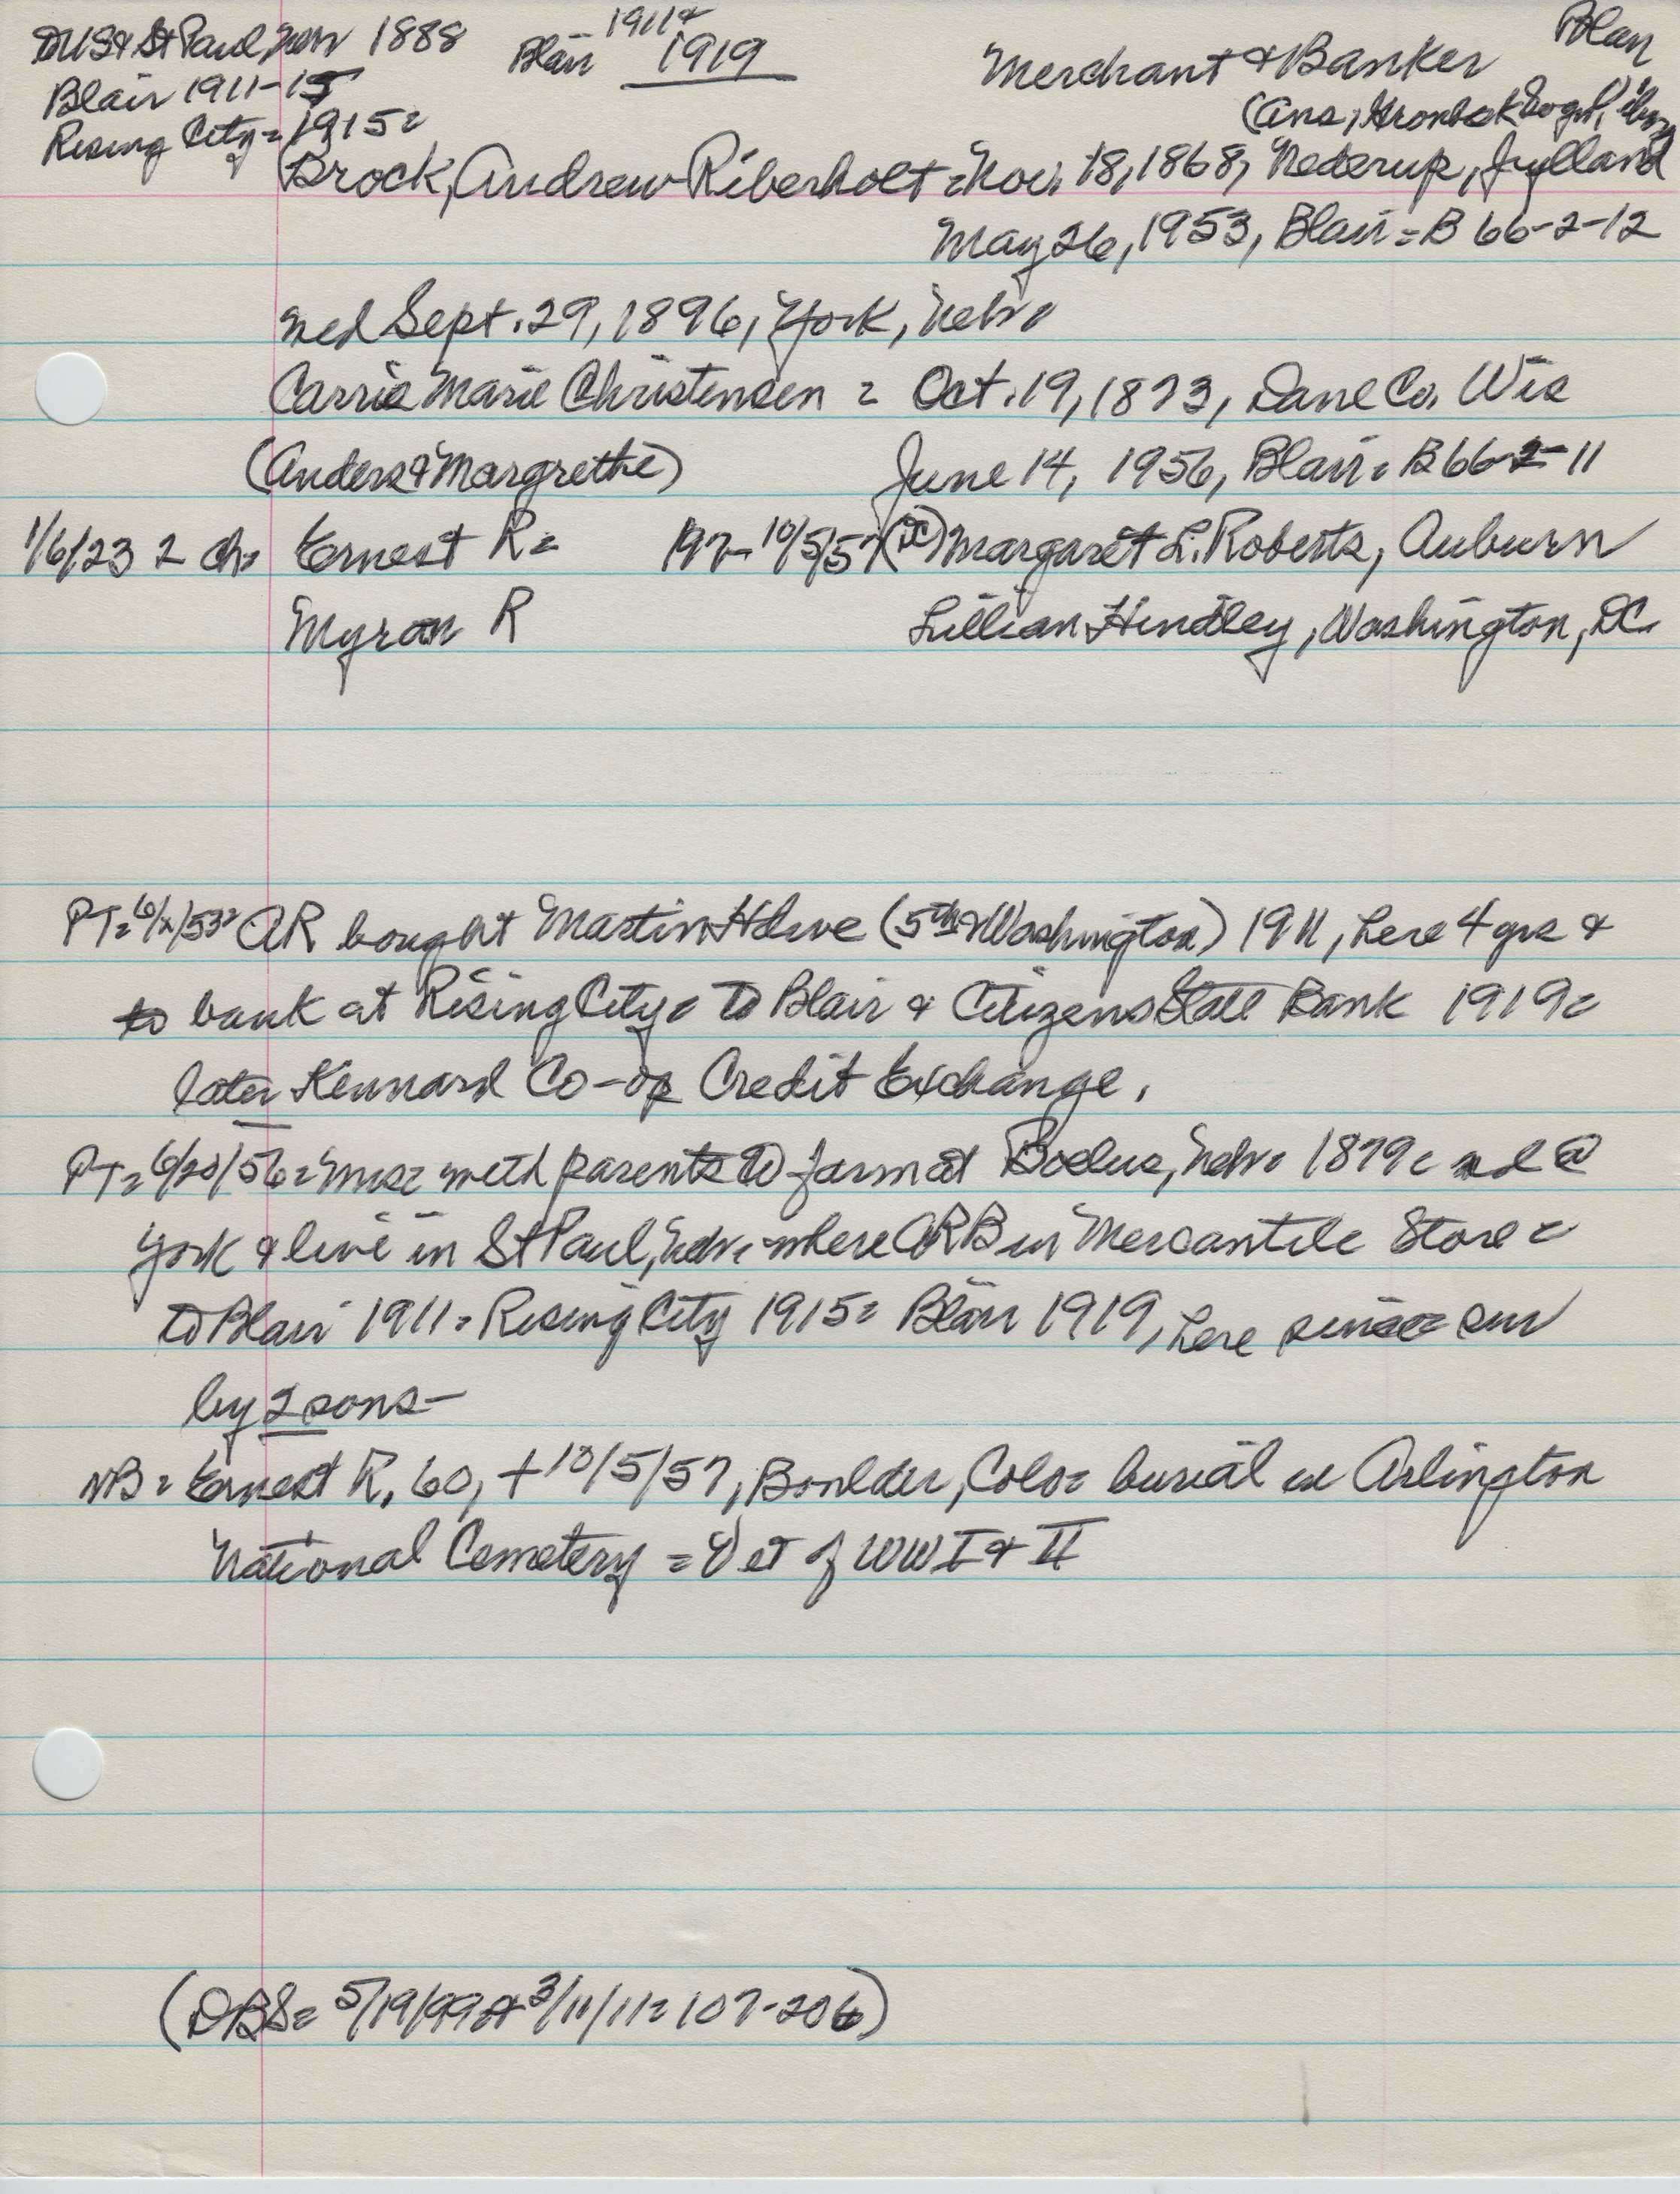 to US & St Paul, Nebr 1888
Blair 1911-15
Rising City = 1915 =
Blair 1911 &
1919
Merchant & Banker
Blair
(Ans, Sogn,
Brock, Andrew Riberholt = Nov. 18, 1868, Nederup, Jylland
May 26, 1953, Blair = B 66-2-12
md Sept. 29, 1896, York, Nebr =
Carrie Marie Christensen = Oct. 19, 1873, Dane Co, Wis
(Anders & Margrethe) June 14, 1956, Blair = B 66-2-11
1/6/23 2 ch = Ernest R = 197- 10/5/57 (DC) Margaret L. Roberts, Auburn
Myron R Lillian Hindley, Washington, DC.
PT = 6/ /53 = AR bought Martin (5th & Washington) 1911, here 4 yrs &
to bank at Rising City = to Blair & Citizens State Bank 1919 =
later Kennard Co-op Credit Exchange.
PT = 6/20/56 = Mrs = with parents to farm at Boelus, Nebr = 1879 = md @
York & live in St Paul, Nebr = where ARB in Mercantile Store =
to Blair 1911 = Rising City 1915 = Blair 1919, here since = sur
by 2 sons -
NB = Ernest R, 60, + 10/5/57, Boulder, Colo = burial in Arlington
National Cemetery = Vet of WW I & II
(DBS = 5/19/99 & 3/11/11 = 107-206)